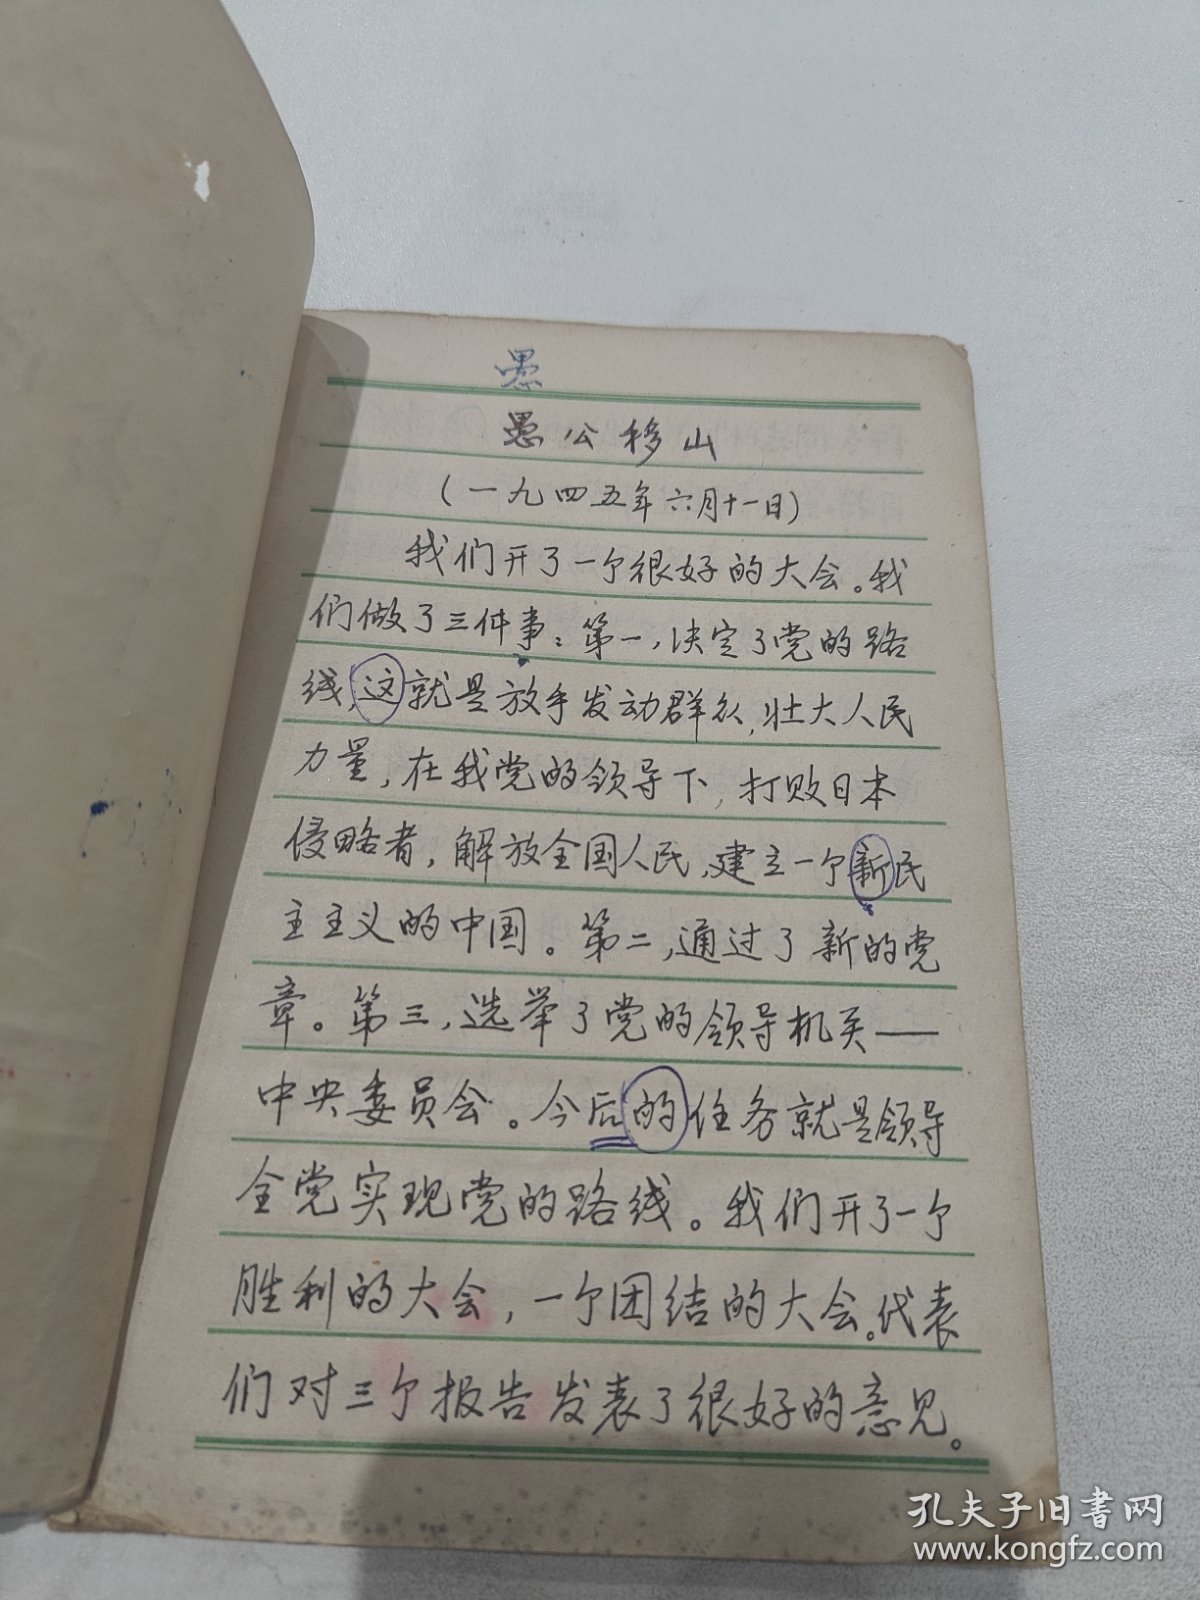 愚
愚公移山
(一九四五年六月十一日)
我们开了一个很好的大会。我
们做了三件事:第一,决定了党的路
线,这就是放手发动群众,壮大人民
力量,在我党的领导下,打败日本
侵略者,解放全国人民,建立一个新民
主主义的中国。第二,通过了新的党
章。第三,选举了党的领导机关——
中央委员会。今后的任务就是领导
全党实现党的路线。我们开了一个
胜利的大会,一个团结的大会。代表
们对三个报告发表了很好的意见。
孔夫子旧书网
www.kongfz.com